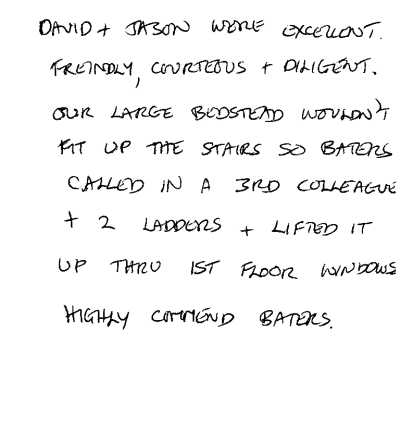 DAVID + JASON WERE EXCELLENT.
FREINDLY, COURTEOUS + DILIGENT.
OUR LARGE BEDSTEAD WOULDN'T
FIT UP THE STAIRS SO BATERS
CALLED IN A 3RD COLLEAGUE
+ 2 LADDERS + LIFTED IT
UP THRU 1ST FLOOR WINDOWS
HIGHLY COMMEND BATERS.